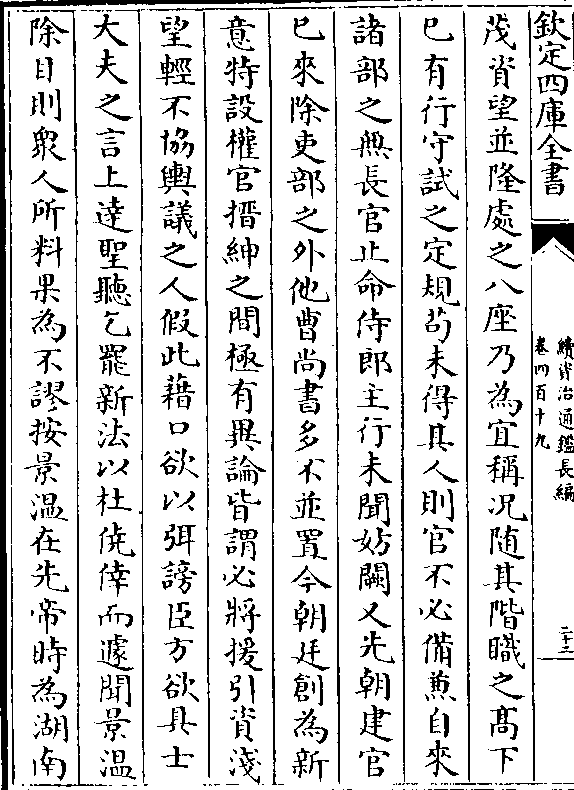 欽定四庫全書
續資治通鑑長編
卷四百十九
二十三
茂資望並隆處之八座乃為宜稱况随其階職之髙下
已有行守試之定規茍未得其人則官不必備兼自來
諸部之無長官止命侍郎主行未聞妨闕又先朝建官
已來除吏部之外他曹尚書多不並置今朝廷創為新
意特設權官搢紳之間極有異論皆謂必將援引資淺
望輕不協輿議之人假此藉口欲以弭謗臣方欲具士
大夫之言上達聖聽乞罷新法以杜僥倖而遽聞景温
除目則衆人所料果為不謬按景温在先帝時為湖南